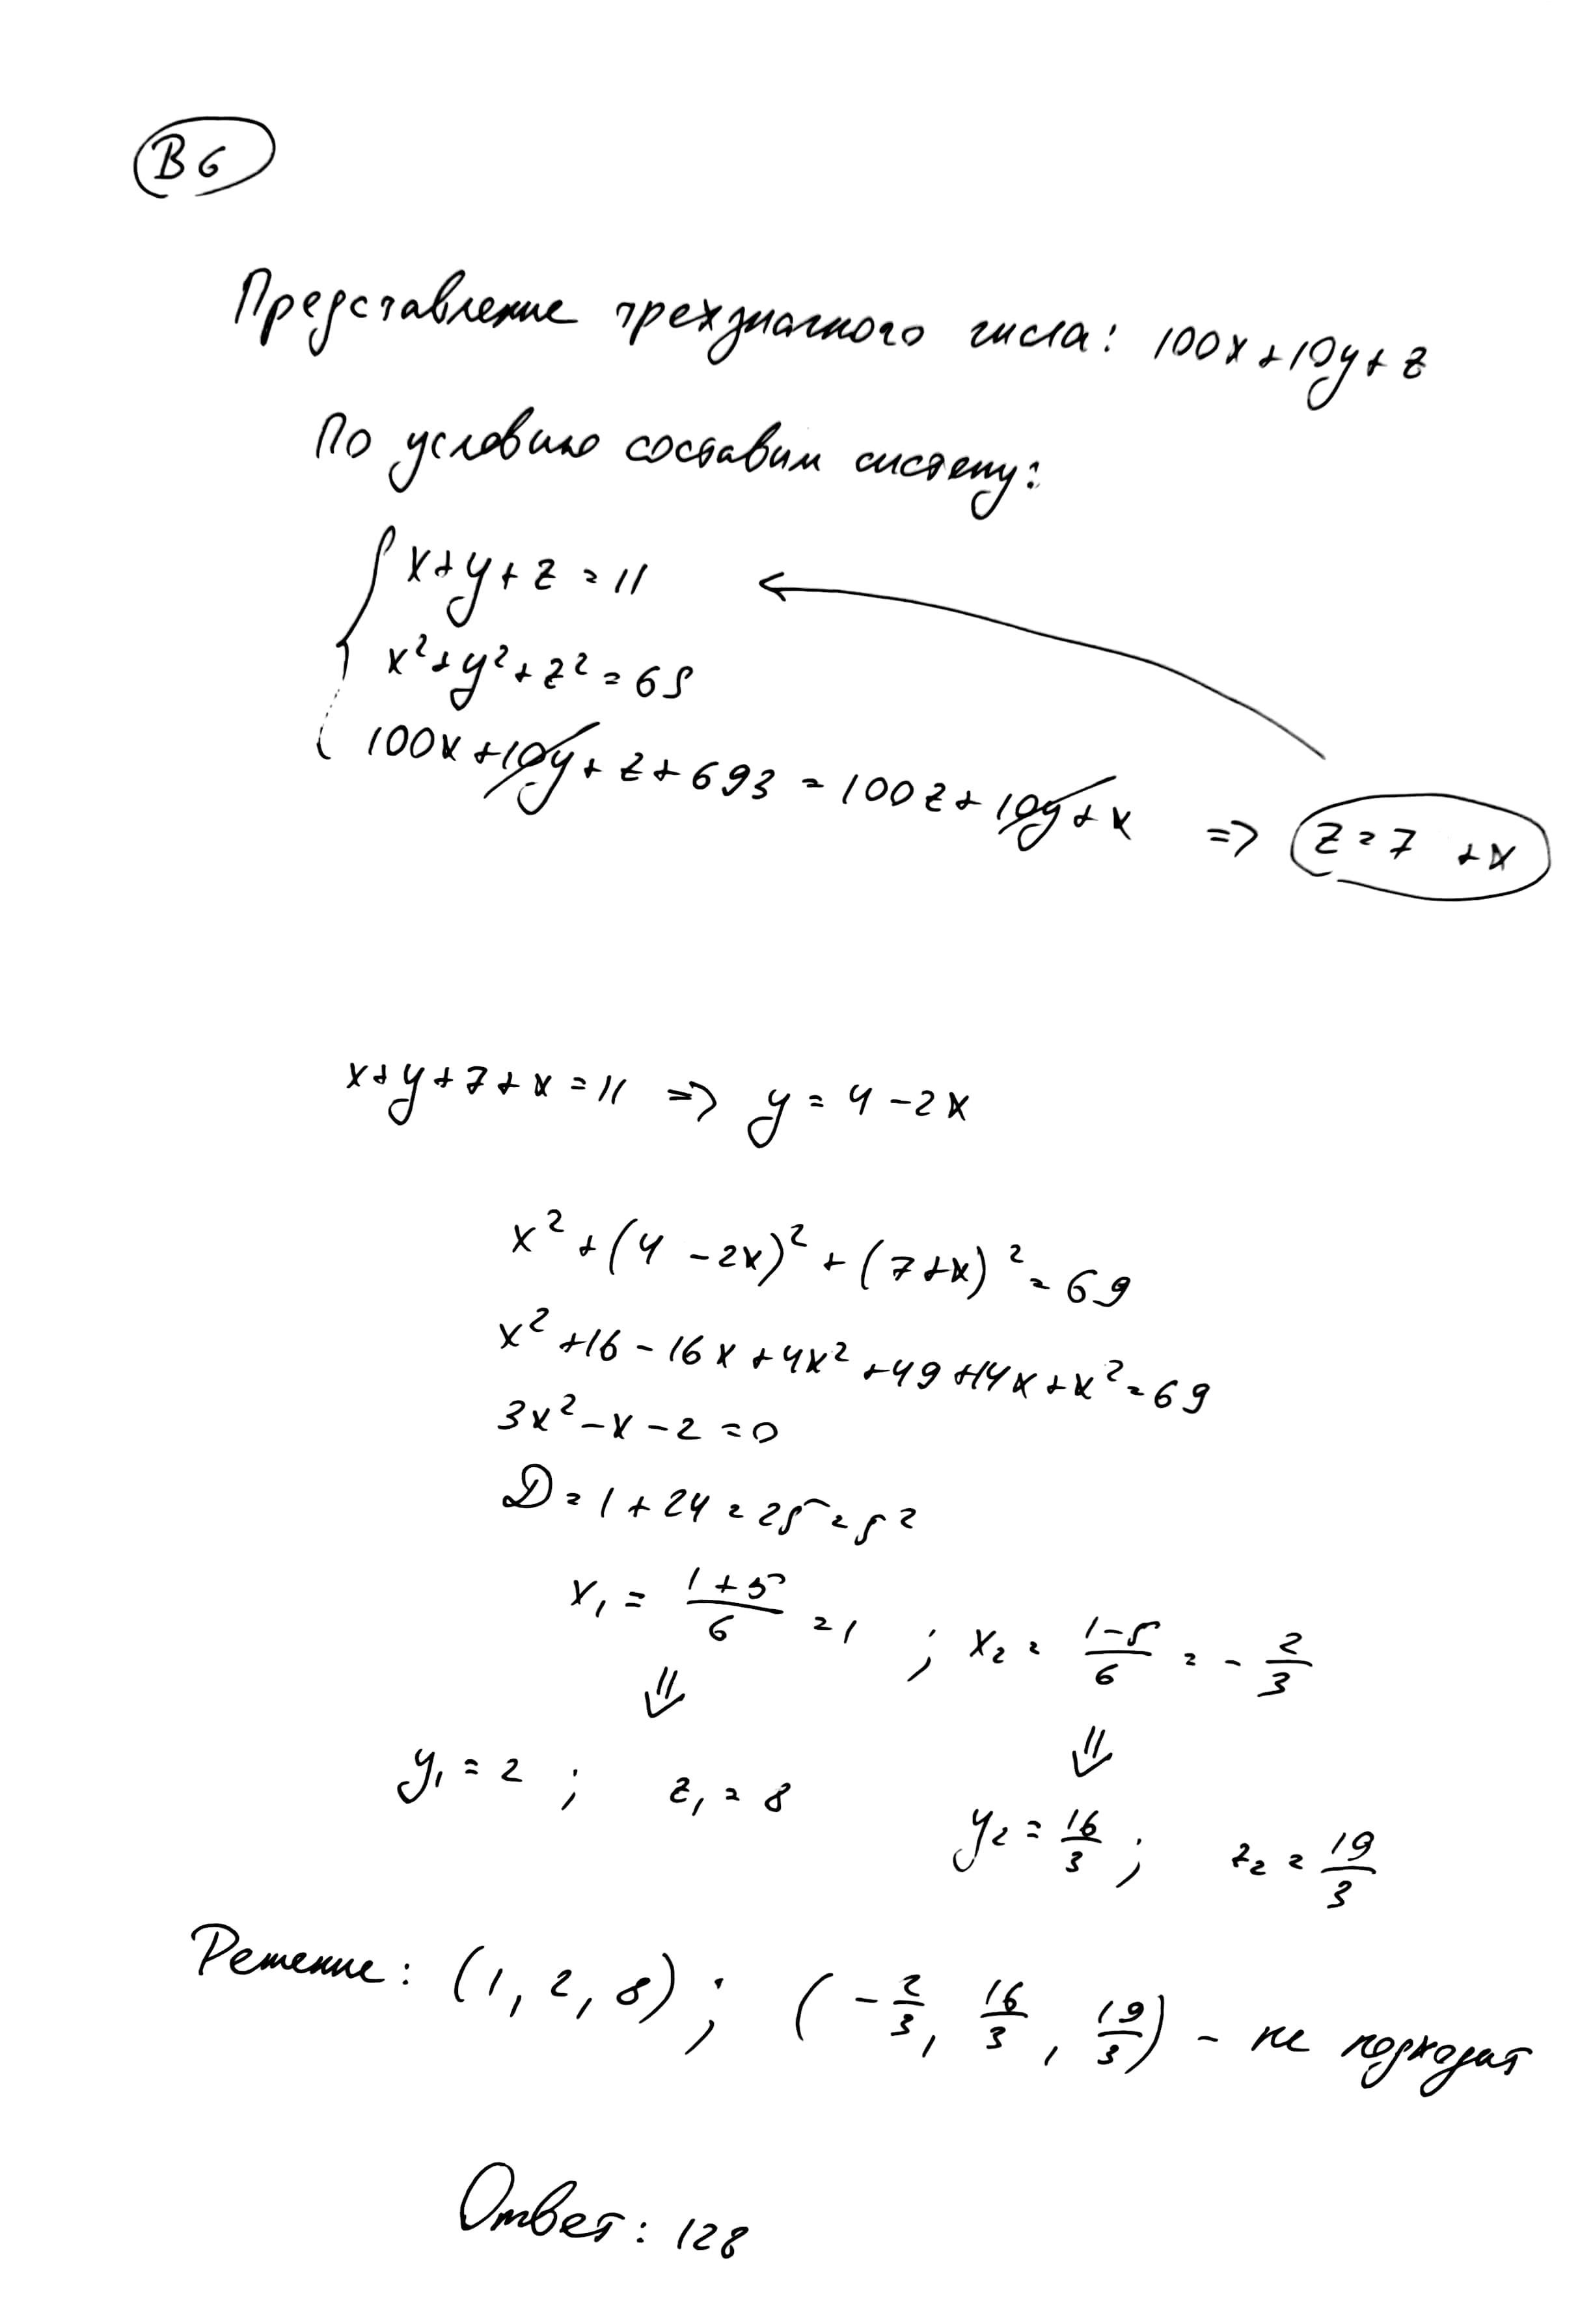 В 6
Представление трехзначного числа: 100x+10y+z
По условию составим систему:
x+y+z=11
x²+y²+z²=69
100x+10y+z+693=100z+10y+x => z=7+x
x+y+7+x=11 => y=4-2x
x²+(4-2x)²+(7+x)²=69
x²+16-16x+4x²+49+14x+x²=69
3x²-x-2=0
D=1+24=25=5²
x₁=(1+5)/6=1 ; x₂=(1-5)/6=-2/3
⇓
⇓
y₁=2 ; z₁=8
y₂=16/3 ; z₂=19/3
Решение: (1, 2, 8) ; (-2/3, 16/3, 19/3) - не подходит
Ответ: 128